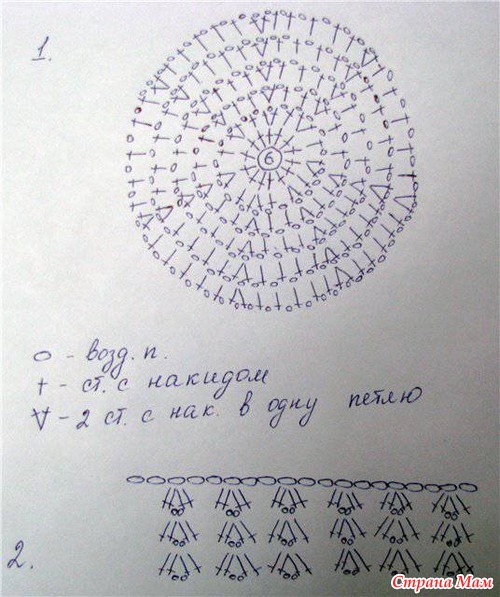 1.
6
о - возд. п.
† - ст. с накидом
V - 2 ст. с нак. в одну петлю
2.
Страна Мам